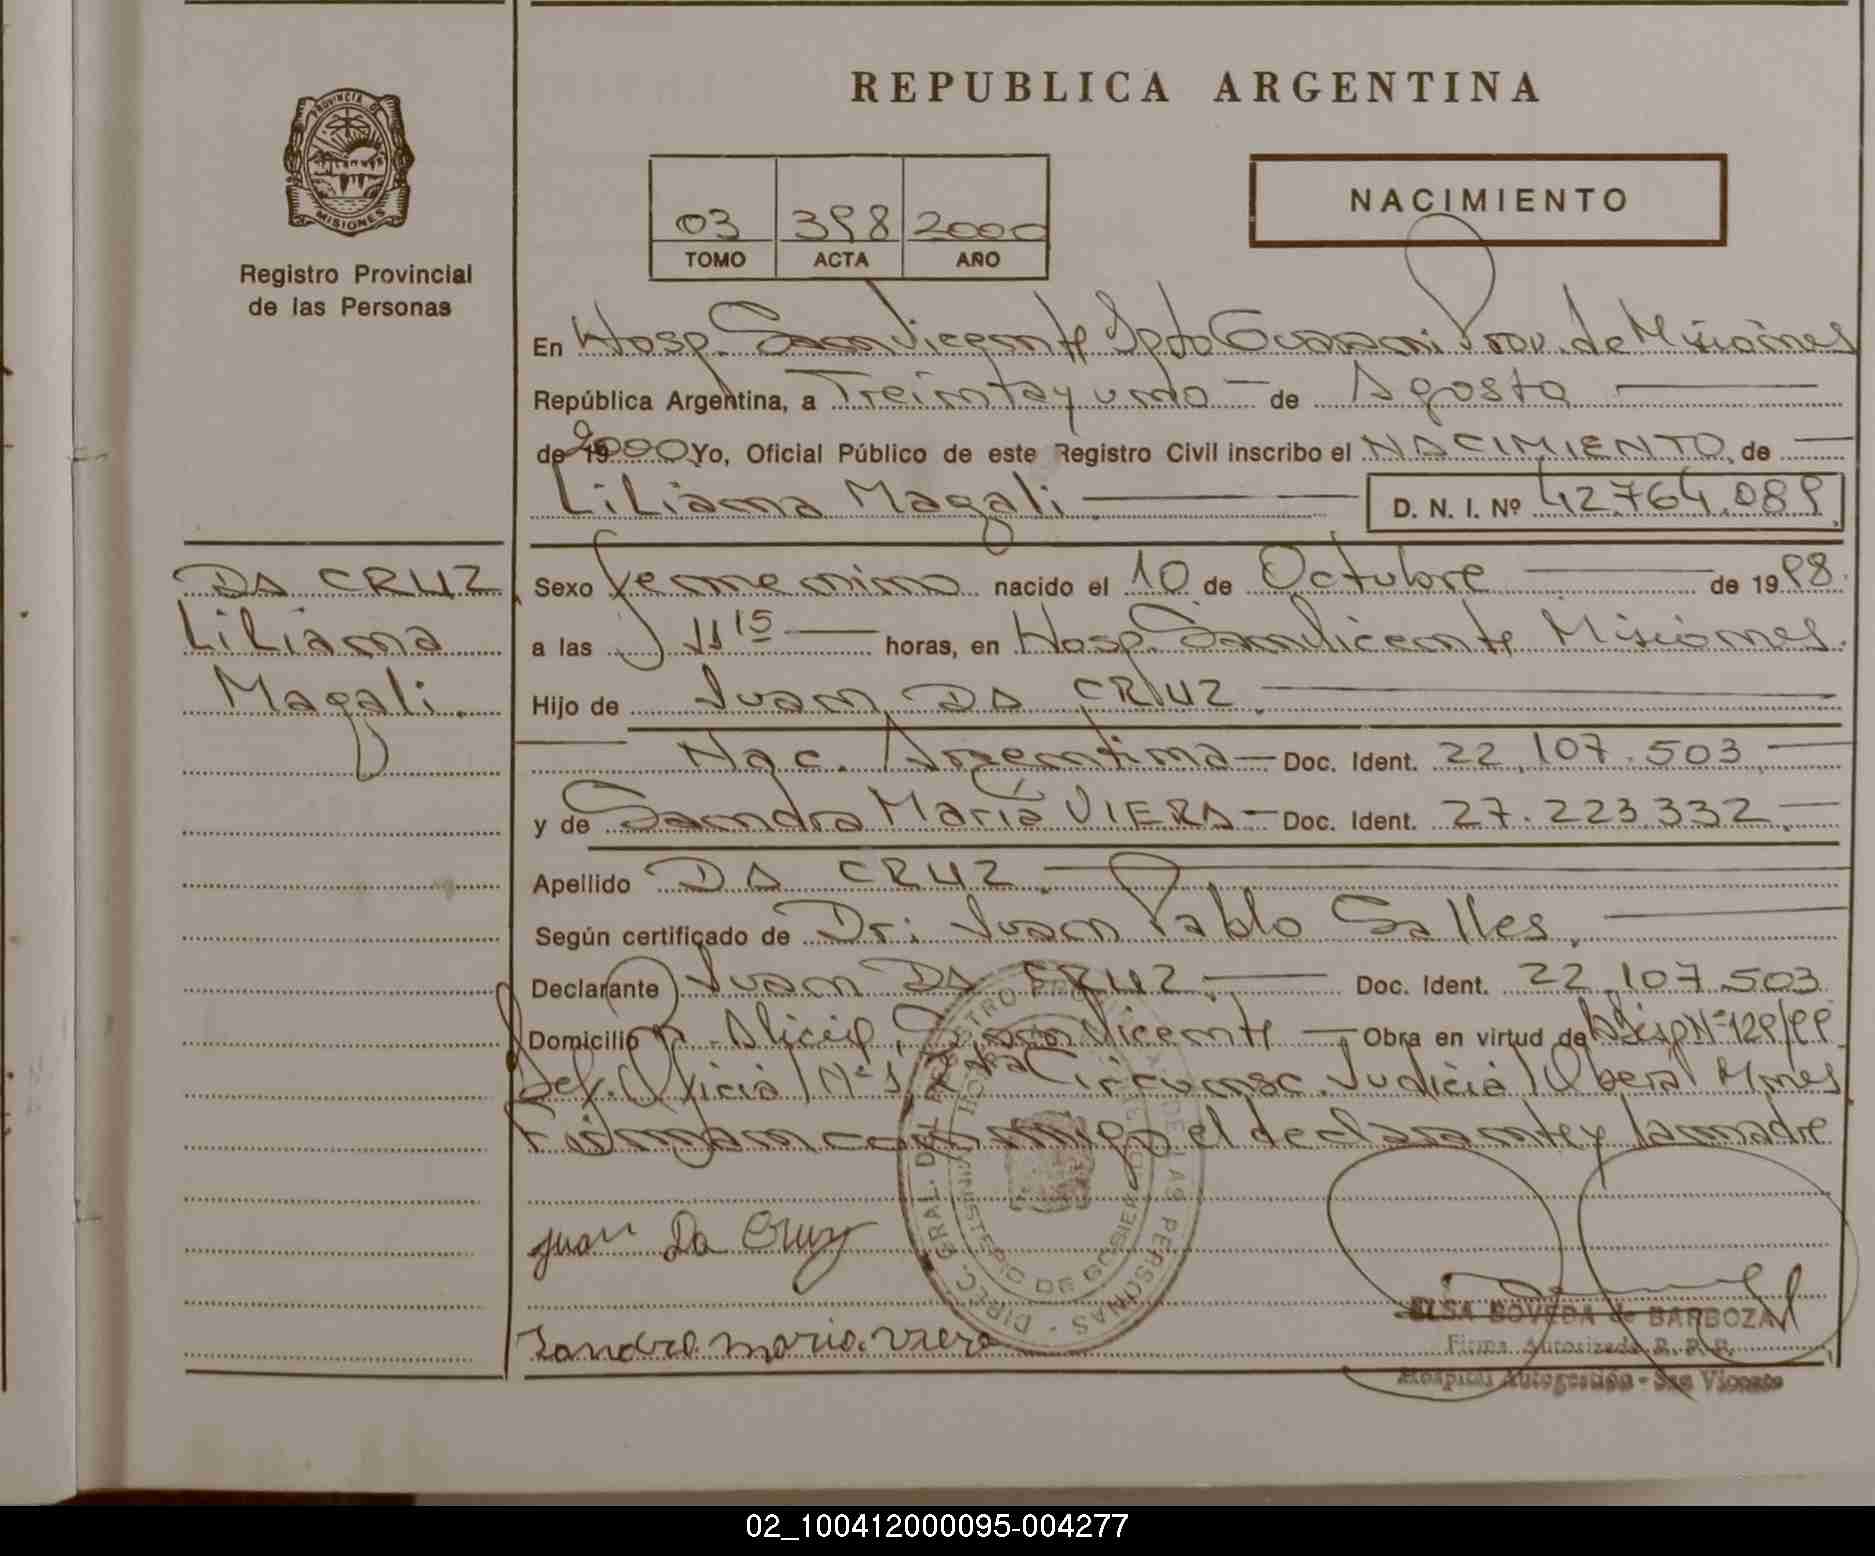 REPUBLICA ARGENTINA
PROVINCIA DE
MISIONES
Registro Provincial
de las Personas
03 398 2000
TOMO ACTA AÑO
NACIMIENTO
En Hosp. San Vicente Dpto Guarani Prov. de Misiones
República Argentina, a Treinta y uno de Agosto
de 19 2000 Yo, Oficial Público de este Registro Civil inscribo el NACIMIENTO, de
Liliana Magali. D. N. I. Nº 42.764.089
DA CRUZ
Liliana
Magali.
Sexo femenino nacido el 10 de Octubre de 1998.
a las 11 15 horas, en Hosp. San Vicente Misiones.
Hijo de Juan DA CRUZ.
Nac. Argentina Doc. Ident. 22.107.503
y de Sandra Maria VIERA Doc. Ident. 27.223.332.
Apellido DA CRUZ.
Según certificado de Dr: Juan Pablo Salles.
Declarante Juan DA CRUZ. Doc. Ident. 22.107.503
Domicilio Alicia, San Vicente Obra en virtud de Nº 129/99
Def. Oficial Nº 1, Circunsc. Judicial Oberá Mnes
Firman con migo el declarante y la madre
Juan Da Cruz
Sandra maria viera
DIREC. GRAL. DEL REGISTRO DE LAS PERSONAS
MINISTERIO DE GOBIERNO
ELSA BOVEDA de BARBOZA
Firma Autorizada R. P. P.
Hospital Autogestión - San Vicente
02_100412000095-004277